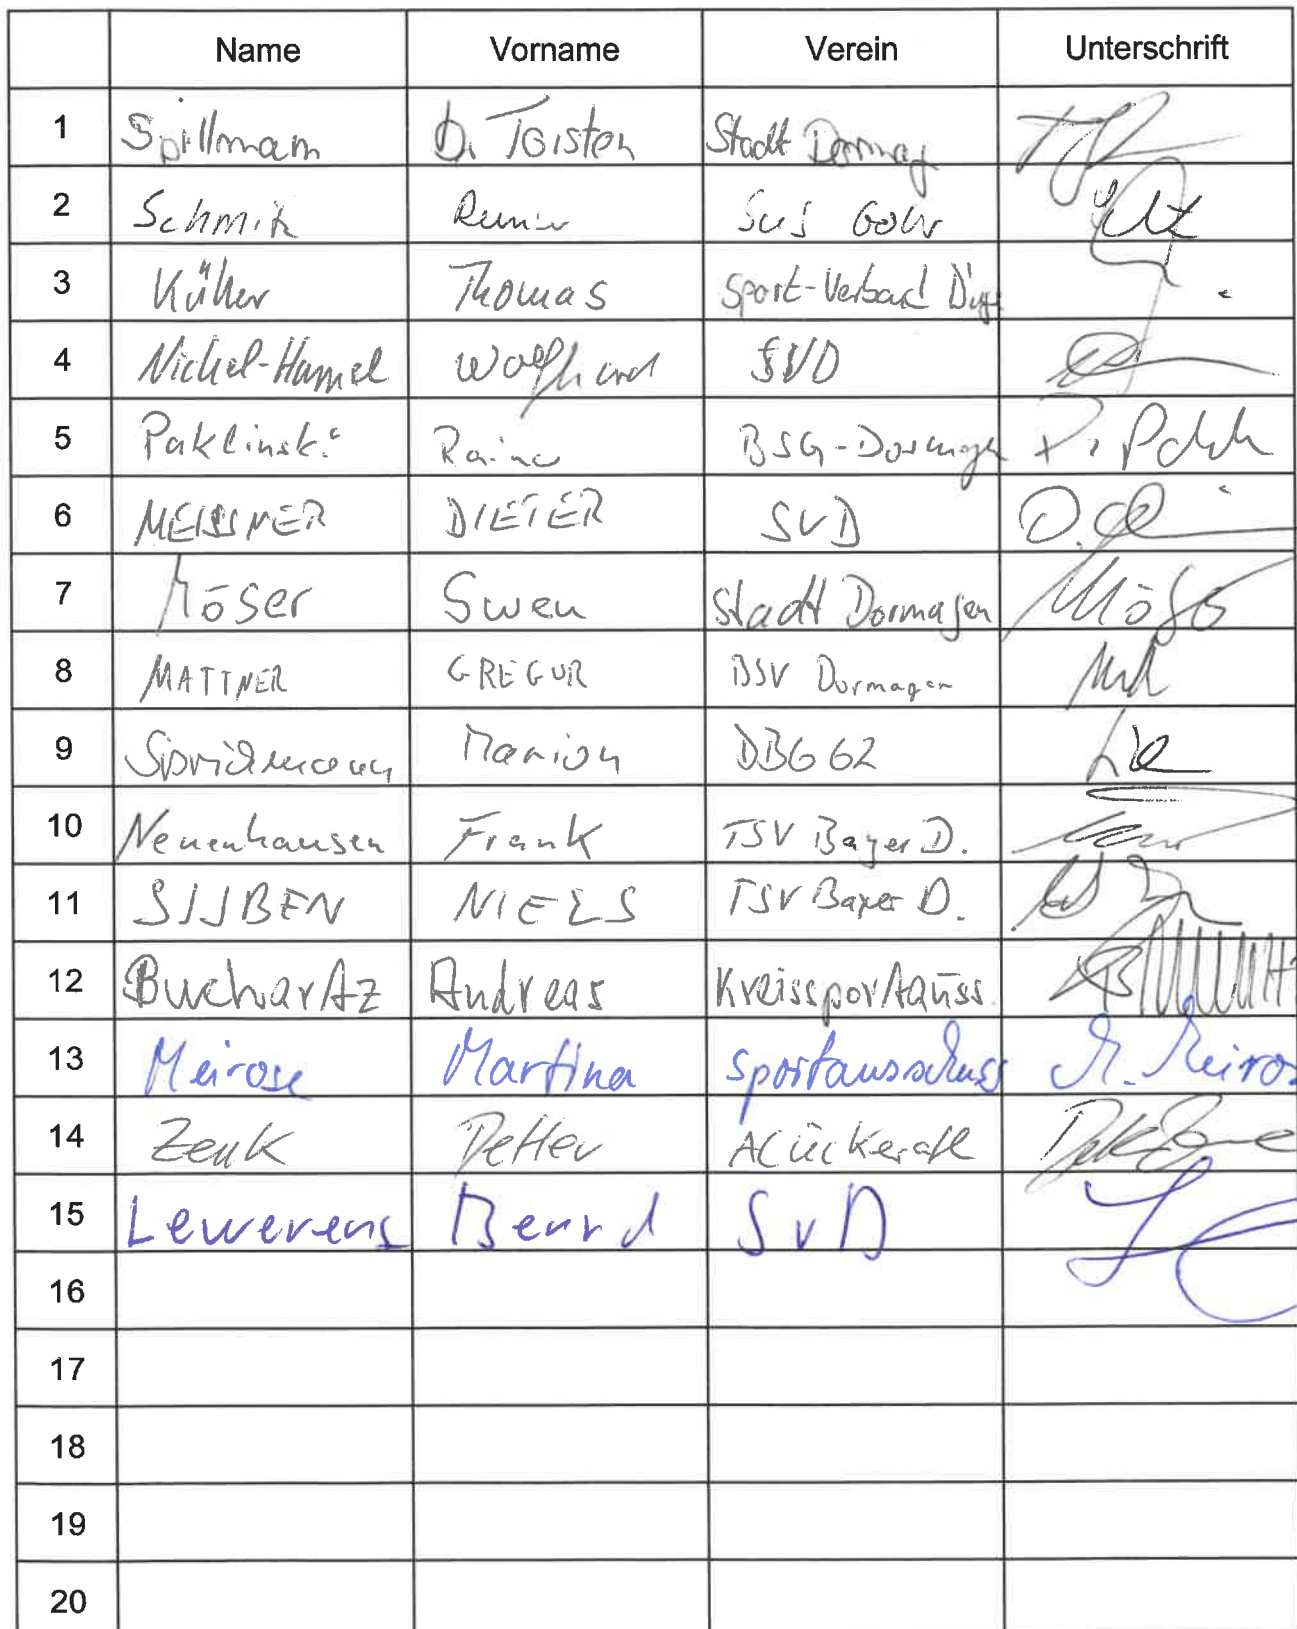 Name Vorname Verein Unterschrift
1 Spillmann Dr. Torsten Stadt Dormag
2 Schmitz Reiner SuS Gohr
3 Thomas Sport-Verband
4 Nichel-Hamel Wolfhard SVD
5 Paklinski Rainer BSG-Dormagen
6 MEISSNER DIETER SVD D.
7 Möser Swen Stadt Dormagen Möser
8 MATTNER GREGOR BSV Dormagen
9 Marion DBG 62
10 Neuenhausen Frank TSV Bayer D.
11 SIJBEN NIELS TSV Bayer D.
12 Buchartz Andreas Kreissportauss.
13 Meirose Martina Sportausschuss M. Meiros
14 Zenk Detlev AC Ückerath
15 Lewerenz Bernd SVD
16
17
18
19
20